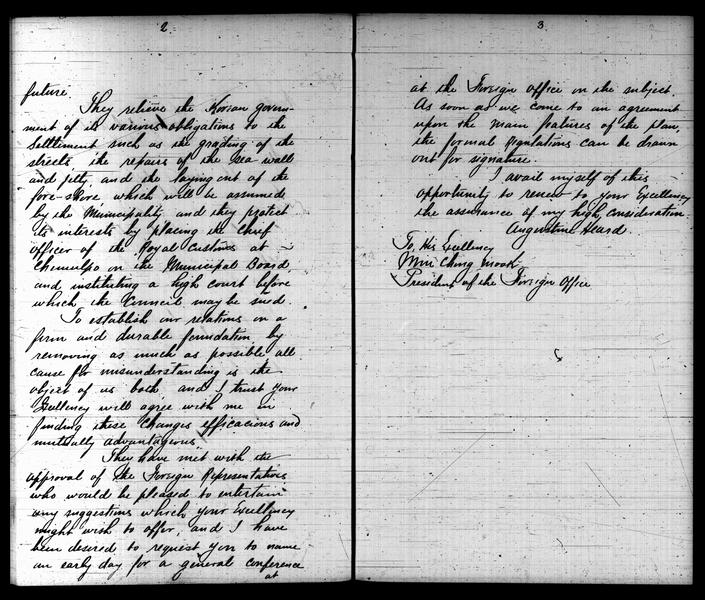 2
future.
They relieve the Korean govern-
ment of its various obligations to the
Settlement such as the grading of the
streets, the repairs of the sea wall
and jetty, and the laying out of the
fore-shore which will be assumed
by the Municipality and they protect
its interests by placing the Chief
officer of the Royal Customs at
Chemulpo on the Municipal Board,
and instituting a high court before
which the Council may be sued.
To establish our relations on a
firm and durable foundation, by
removing as much as possible, all
cause for misunderstanding is the
object of us both, and I trust your
Excellency will agree with me in
finding these changes efficacious and
mutually advantageous.
They have met with the
approval of the Foreign Representatives
who would be pleased to entertain
any suggestions which your Excellency
might wish to offer, and I have
been desired to request you to name
an early day for a general conference
at
3
at the Foreign Office on the subject.
As soon as we come to an agreement
upon the main features of the plan,
the formal regulations can be drawn
out for signature.
I avail myself of this
opportunity to renew to your Excellency
the assurance of my high consideration.
Augustine Heard.
To, His Excellency
Min Chong Mook
President of the Foreign Office